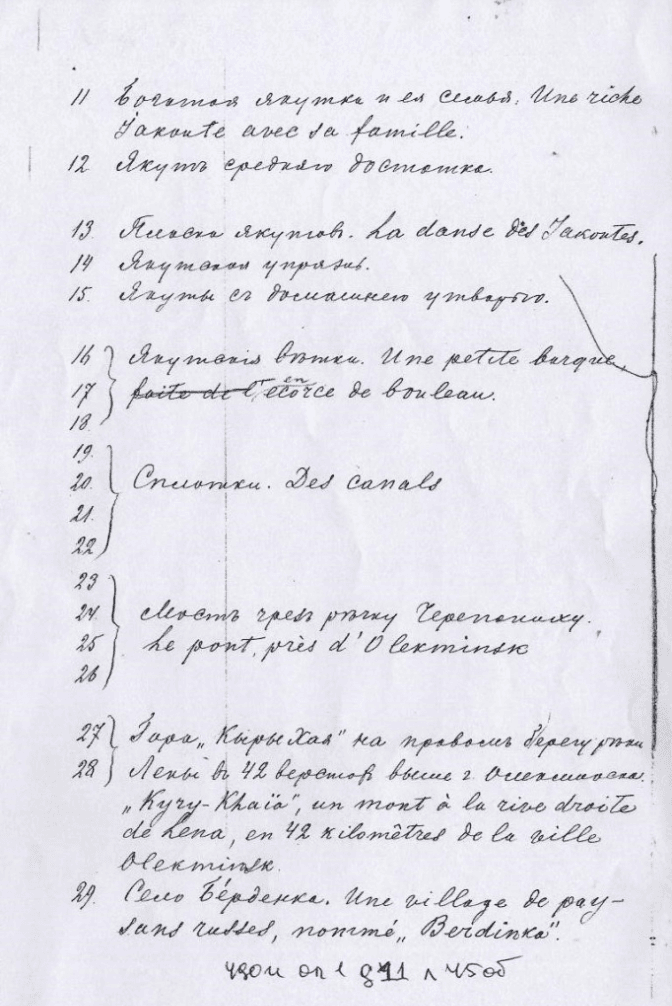 11 Богатая якутка и ея семья. Une riche
Jakoute avec sa famille.
12 Якутъ средняго достатка.
13. Пляска якутовъ. La danse des Jakoutes.
14 Якутская упряжь.
15. Якуты съ домашнею утварью.
16 Якутскія вѣтки. Une petite barque,
17 faite de l'écorce en de bouleau.
18.
19.
20. Сплотки. Des canals
21.
22
23
24. Мостъ чрезъ рѣчку Черепаниху.
25 Le pont, près d'Olekminsk
26
27 Гора „Кыры Хая" на правомъ берегу рѣки
28 Лены въ 42 верстахъ выше г. Олекминска.
„Kyry-Khaïa", un mont à la rive droite
de Lena, en 42 kilomêtres de la ville
Olekminsk.
29. Село Бердинка. Une village de pay-
sans russes, nommé „Berdinka".
оп 1 л 45об